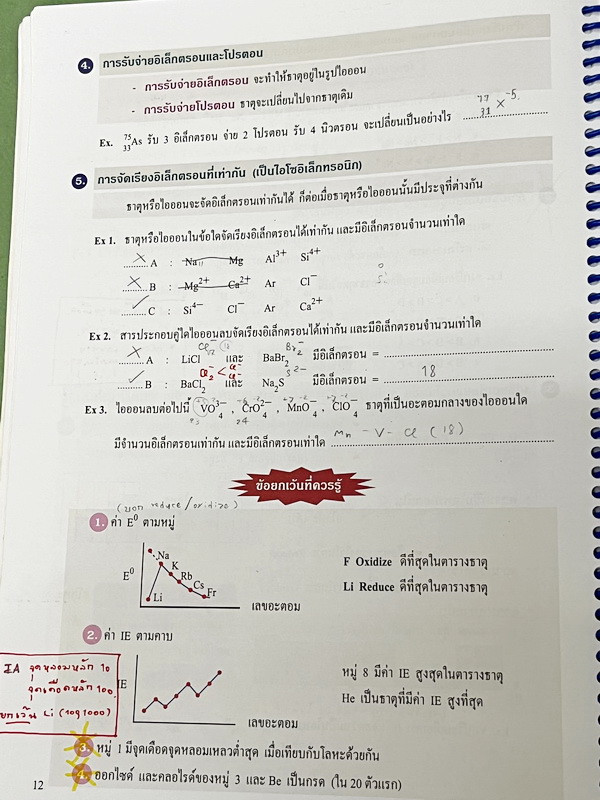 4. การรับจ่ายอิเล็กตรอนและโปรตอน
- การรับจ่ายอิเล็กตรอน จะทำให้ธาตุอยู่ในรูปไอออน
- การรับจ่ายโปรตอน ธาตุจะเปลี่ยนไปจากธาตุเดิม
Ex. ⁷⁵₃₃As รับ 3 อิเล็กตรอน จ่าย 2 โปรตอน รับ 4 นิวตรอน จะเปลี่ยนเป็นอย่างไร ⁷⁷₃₁X⁻⁵
5. การจัดเรียงอิเล็กตรอนที่เท่ากัน (เป็นไอโซอิเล็กทรอนิก)
ธาตุหรือไอออนจะจัดอิเล็กตรอนเท่ากันได้ ก็ต่อเมื่อธาตุหรือไอออนนั้นมีประจุที่ต่างกัน
Ex 1. ธาตุหรือไอออนในข้อใดจัดเรียงอิเล็กตรอนได้เท่ากัน และมีอิเล็กตรอนจำนวนเท่าใด
A : Na Mg Al³⁺ Si⁴⁺
B : Mg²⁺ Ca²⁺ Ar Cl⁻
C : Si⁴⁻ Cl⁻ Ar Ca²⁺
Ex 2. สารประกอบคู่ใดไอออนลบจัดเรียงอิเล็กตรอนได้เท่ากัน และมีอิเล็กตรอนจำนวนเท่าใด
A : LiCl และ BaBr₂ มีอิเล็กตรอน =
B : BaCl₂ และ Na₂S มีอิเล็กตรอน = 18
Ex 3. ไอออนลบต่อไปนี้ VO₄³⁻ , CrO₄²⁻ , MnO₄⁻ , ClO₄⁻ ธาตุที่เป็นอะตอมกลางของไอออนใด
มีจำนวนอิเล็กตรอนเท่ากัน และมีอิเล็กตรอนเท่าใด Mn - V - Cl (18)
ข้อยกเว้นที่ควรรู้
(บอก reduce/oxidize)
1. ค่า E⁰ ตามหมู่
E⁰
Na
K
Rb
Cs
Fr
Li
เลขอะตอม
F Oxidize ดีที่สุดในตารางธาตุ
Li Reduce ดีที่สุดในตารางธาตุ
2. ค่า IE ตามคาบ
IE
เลขอะตอม
หมู่ 8 มีค่า IE สูงสุดในตารางธาตุ
He เป็นธาตุที่มีค่า IE สูงที่สุด
IA จุดหลอมหลัก 10
จุดเดือดหลัก 100
ยกเว้น Li (109 1000)
3. หมู่ 1 มีจุดเดือดจุดหลอมเหลวต่ำสุด เมื่อเทียบกับโลหะด้วยกัน
4. ออกไซด์ และคลอไรด์ของหมู่ 3 และ Be เป็นกรด (ใน 20 ตัวแรก)
12